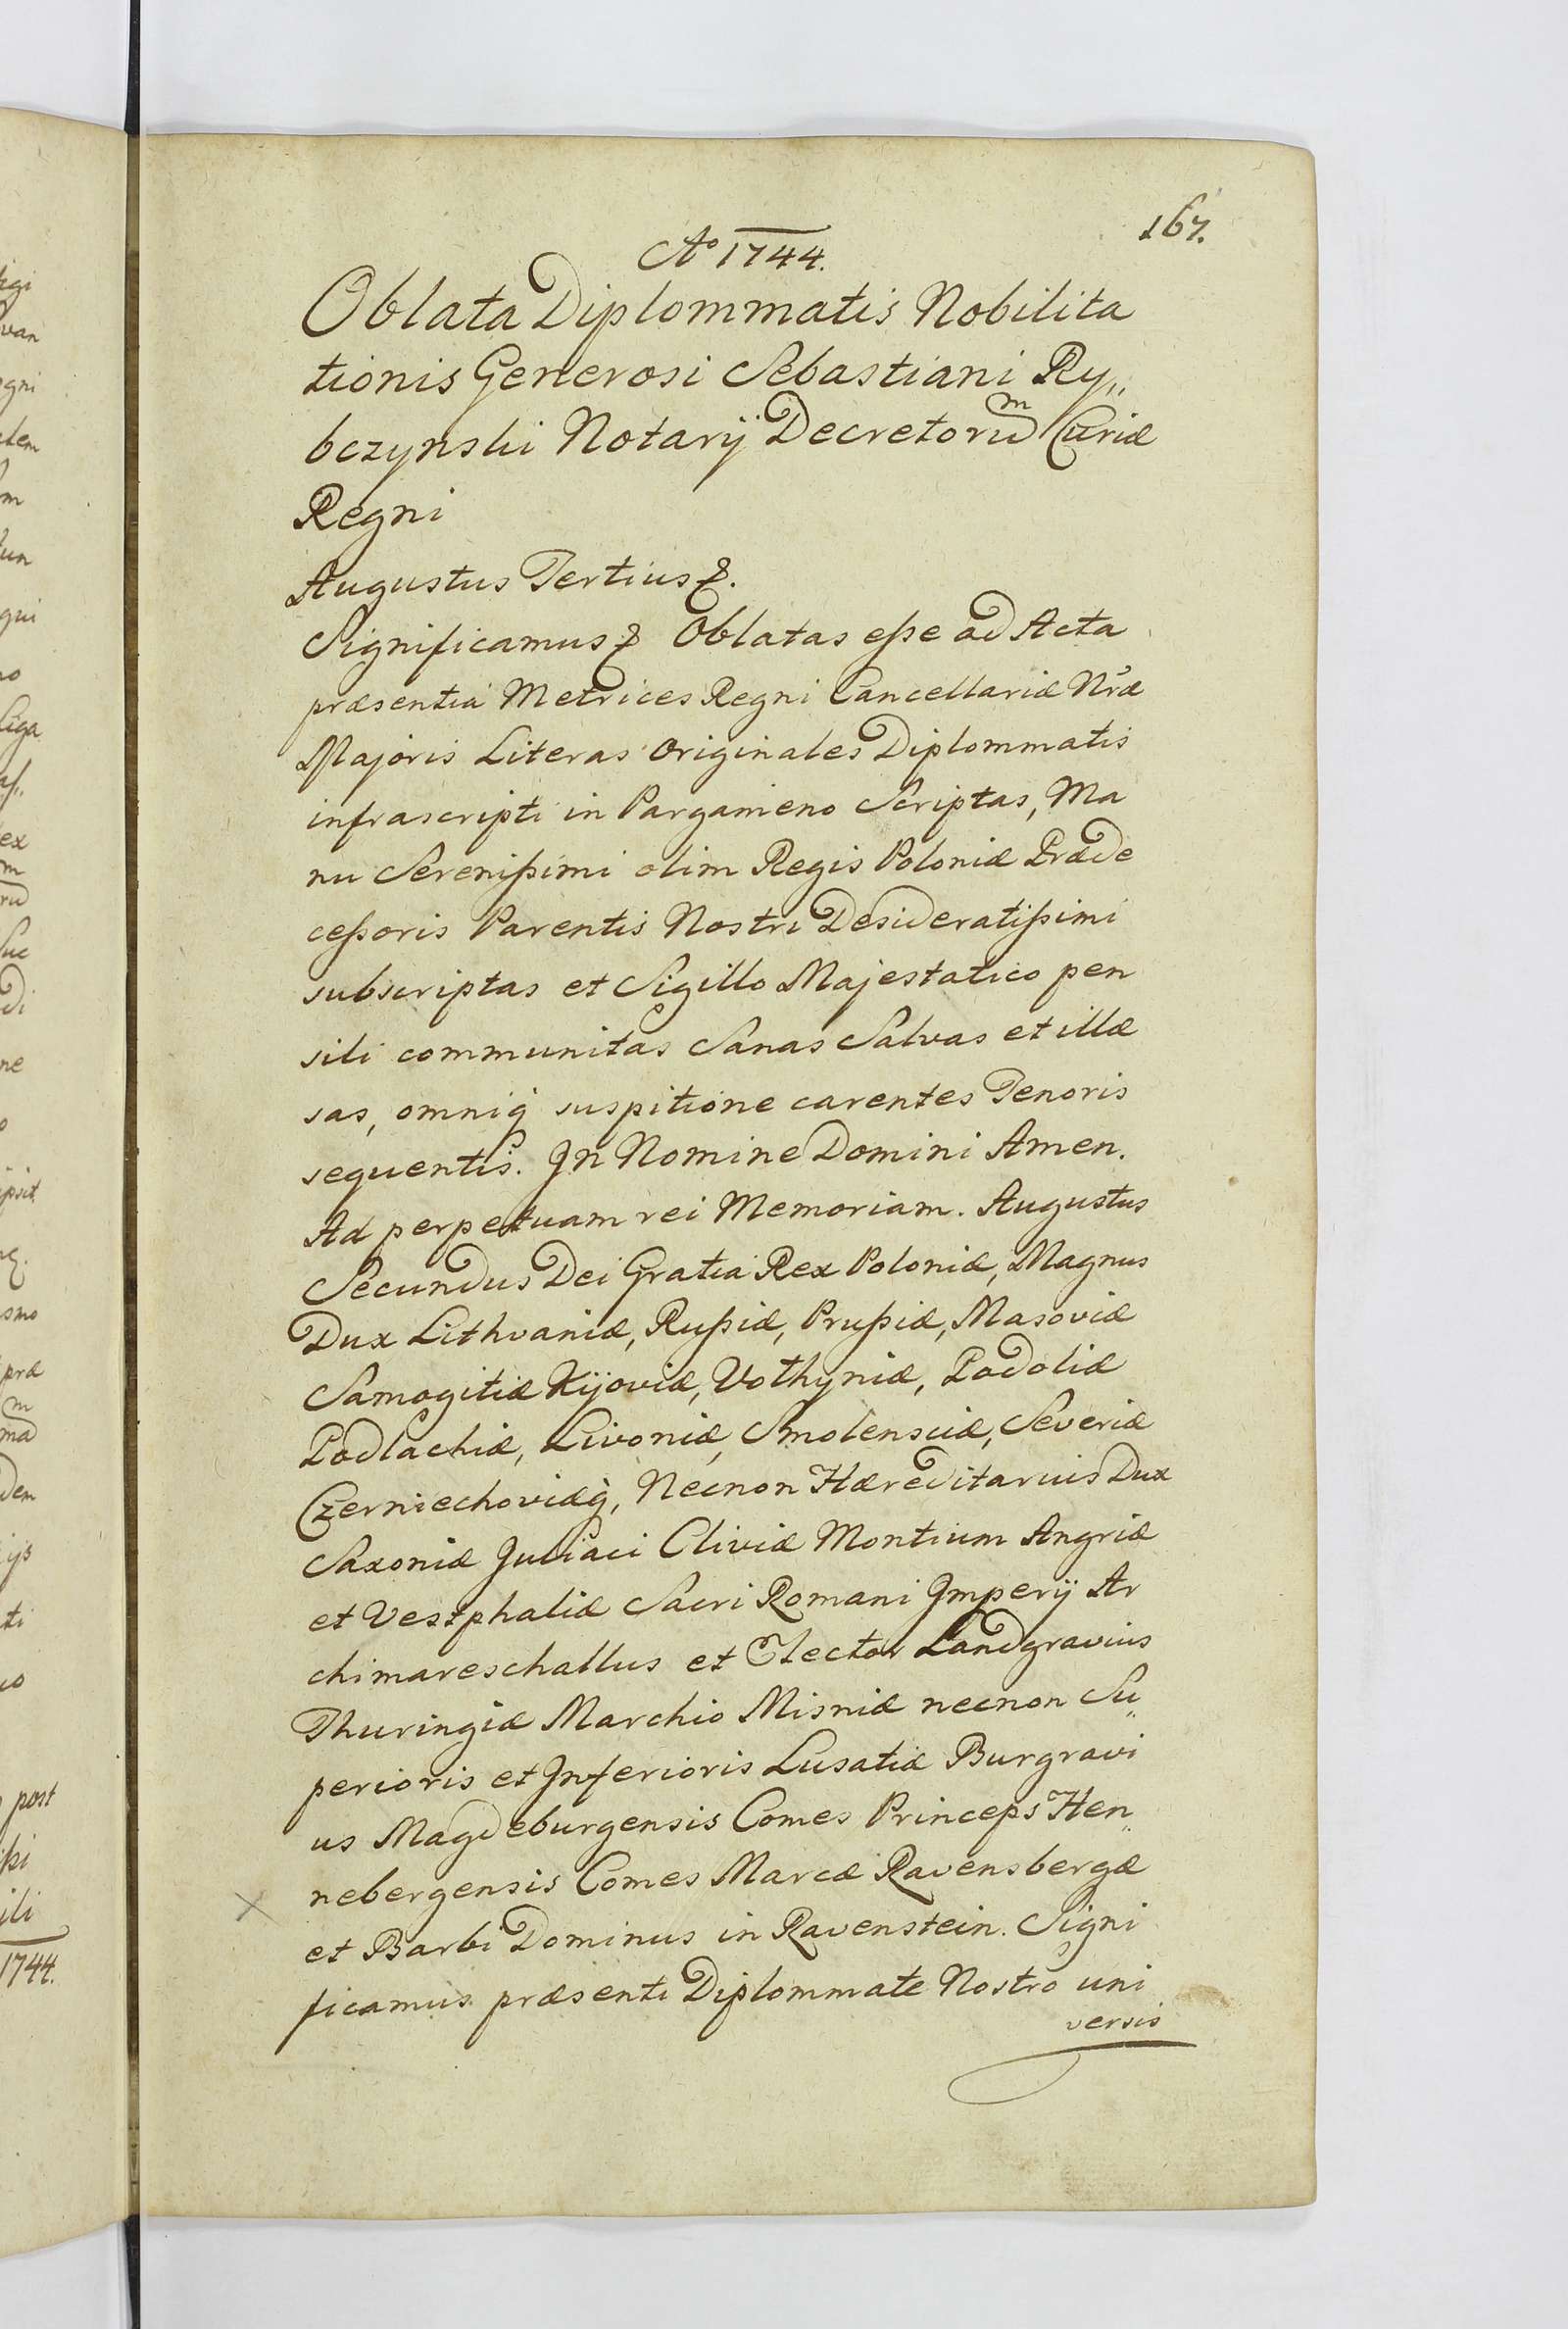 167.
Aº 1744.
Oblata Diplommatis Nobilita
tionis Generosi Sebastiani Ry,,
bczynski Notarÿ Decretorũ Curiæ
Regni
Augustus Tertius &.
Significamus & Oblatas eſse ad Acta
præsentia Metrices Regni Cancellariæ Nr̃æ
Majoris Literas Originales Diplommatis
infrascripti in Pargameno Scriptas, Ma
nu Sereniſsimi olim Regis Poloniæ Præde
ceſsoris Parentis Nostri Desideratiſsimi
subscriptas et Sigillo Majestatico pen
sili communitas Sanas Salvas et illæ
sas, omniq̀ suspitione carentes Tenoris
sequentis. In Nomine Domini Amen.
Ad perpetuam rei Memoriam. Augustus
Secundus Dei Gratia Rex Poloniæ, Magnus
Dux Lithvaniæ, Ruſsiæ, Pruſsiæ, Masoviæ
Samogitiæ Kijoviæ, Volhyniæ, Podoliæ
Podlachiæ, Livoniæ, Smolensciæ, Severiæ
Czerniechoviæq̀, Necnon Hæreditarius Dux
Saxoniæ Juliaci Cliviæ Montium Angriæ
et Vestphaliæ Sacri Romani Imperÿ Ar
chimareschallus et Elector Landgravius
Thuringiæ Marchio Misniæ necnon Su,,
perioris et Inferioris Lusatiæ Burgravi
us Magdeburgensis Comes Princeps Hen,,
nebergensis Comes Marcæ Ravensbergæ
et Barbi Dominus in Ravenstein. Signi
ficamus præsenti Diplommate Nostro uni
versis